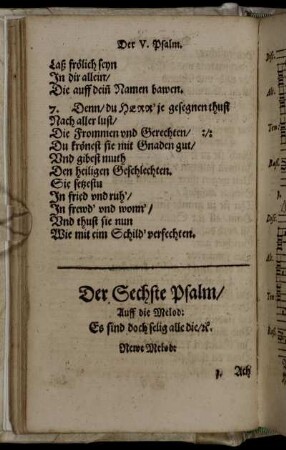 Der V. Psalm.
Laß frölich seyn
In dir allein/
Die auff deiñ Namen bawen.
7. Denn/ du HERR' je gesegnen thust
Nach aller lust/
Die Frommen vnd Gerechten/ :/:
Du krönest sie mit Gnaden gut/
Vnd gibest muth
Den heiligen Geschlechten.
Sie setzestu
In fried vnd ruh'/
In frewd' vnd wonn'/
Vnd thust sie nun
Wie mit eim Schild' verfechten.
Der Sechste Psalm/
Auff die Melod:
Es sind doch selig alle die/ꝛc.
Newe Melod:
1. Ach